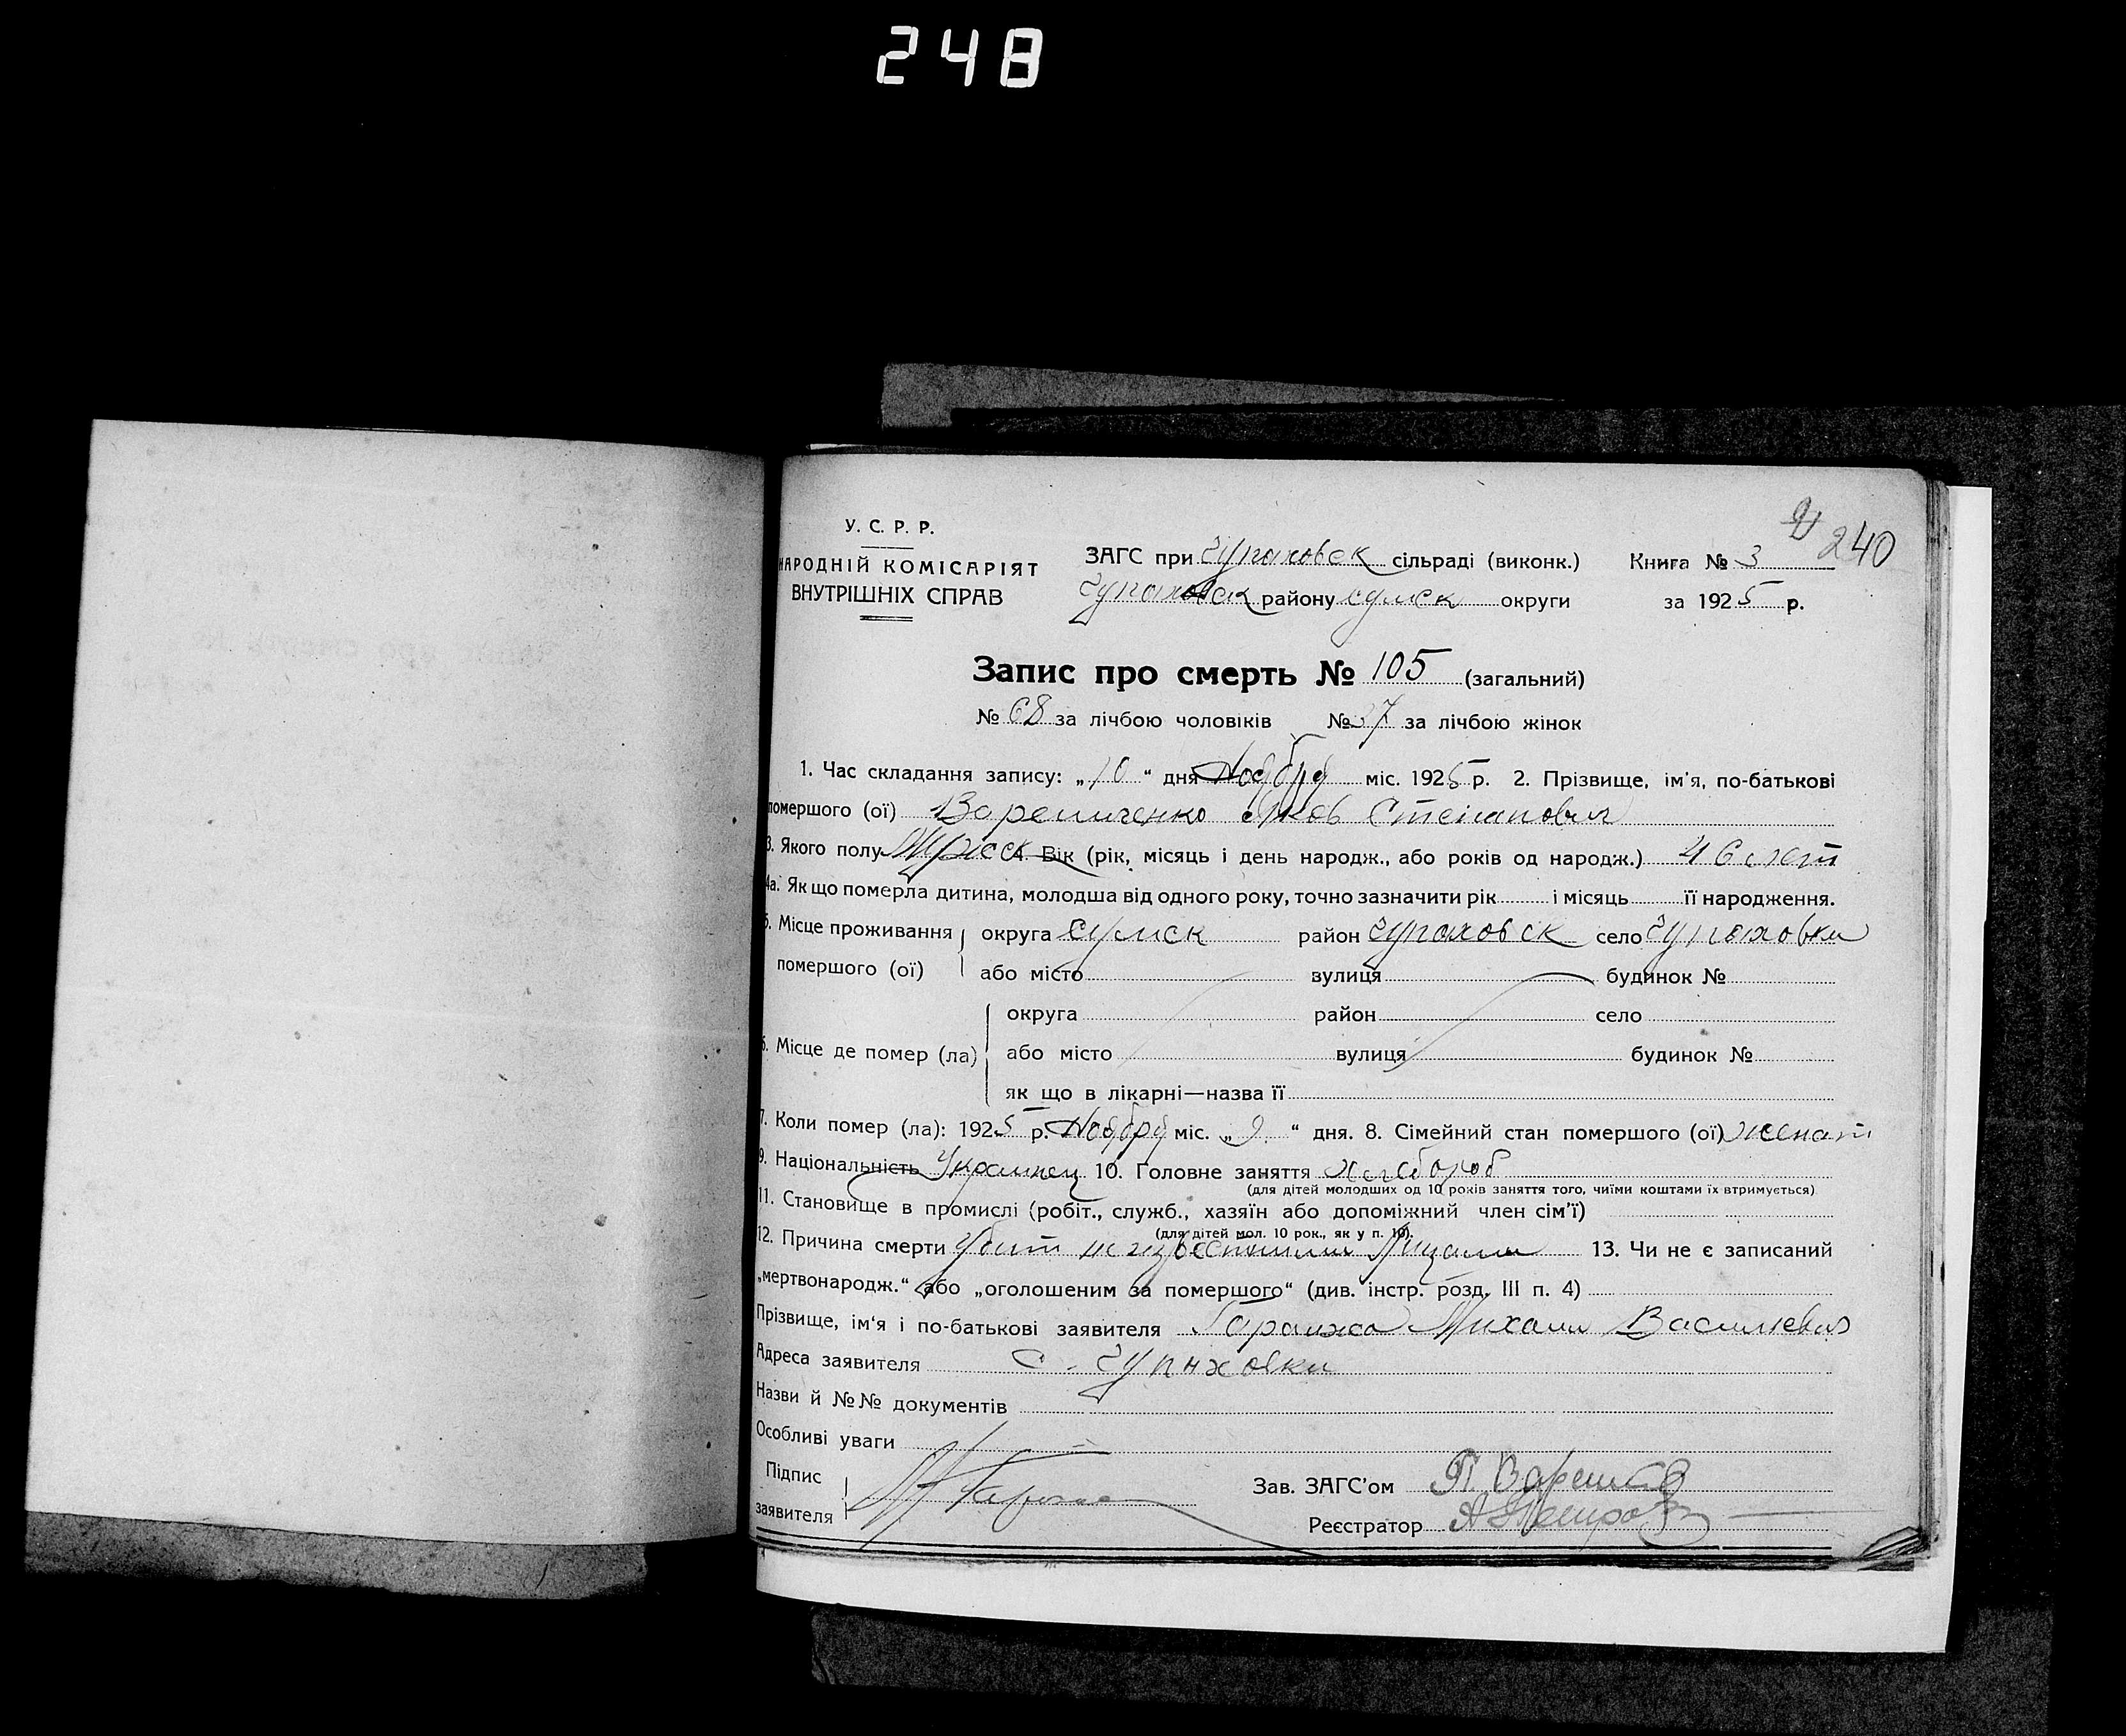 248
240
У. С. Р. Р.
НАРОДНІЙ КОМІСАРІЯТ
ВНУТРІШНІХ СПРАВ
ЗАГС при Чупаховск сільраді (виконк.)
Чупаховск району сумск округи
Книга № 3
за 1925 р.
Запис про смерть № 105 (загальний)
№ 68 за лічбою чоловіків № 37 за лічбою жінок
1. Час складання запису: „10“ дня Ноября міс. 1925 р. 2. Прізвище, ім'я, по-батькові
помершого (ої) Яков Степанович
3. Якого полу Мужск 4. Вік (рік, місяць і день народж., або років од народж.) 46 лет
4а. Як що померла дитина, молодша від одного року, точно зазначити рік і місяць її народження.
5. Місце проживання округа Сумск район Чупаховск село Чупаховки
помершого (ої) або місто вулиця будинок №
округа район село
6. Місце де помер (ла) або місто вулиця будинок №
як що в лікарні—назва її
7. Коли помер (ла): 1925 р. Ноября міс. „9“ дня. 8. Сімейний стан помершого (ої) женат
9. Національність Украинец 10. Головне заняття хлебороб
(для дітей молодших од 10 років заняття того, чиїми коштами їх втримується)
11. Становище в промислі (робіт., служб., хазяїн або допоміжний член сім'ї)
(для дітей мол. 10 рок., як у п. 10).
12. Причина смерти Убит неизвестными Лицами 13. Чи не є записаний
„мертвонародж.“ або „оголошеним за помершого“ (див. інстр. розд. III п. 4)
Прізвище, ім'я і по-батькові заявителя Гаранжа Михаил Василиевич
Адреса заявителя с. Чупаховки
Назви й №№ документів
Особливі уваги
Підпис
заявителя
Зав. ЗАГС'ом
Реєстратор